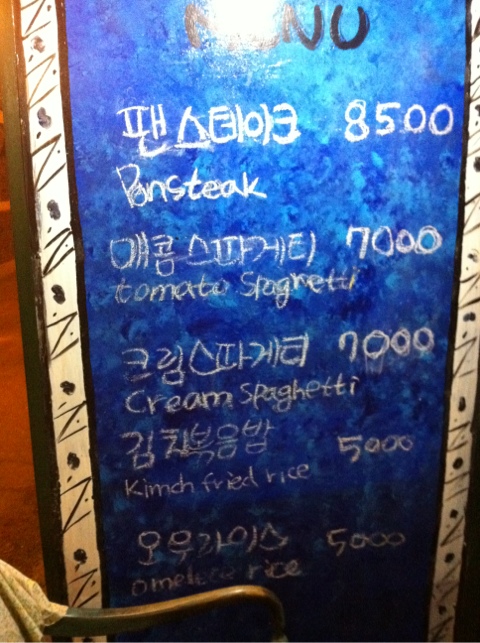 MENU
팬 스테이크 8500
Pansteak
매콤스파게티 7000
tomato Spaghetti
크림스파게티 7000
Cream Spaghetti
김치볶음밥 5000
Kimch fried rice
오무라이스 5000
omelete rice